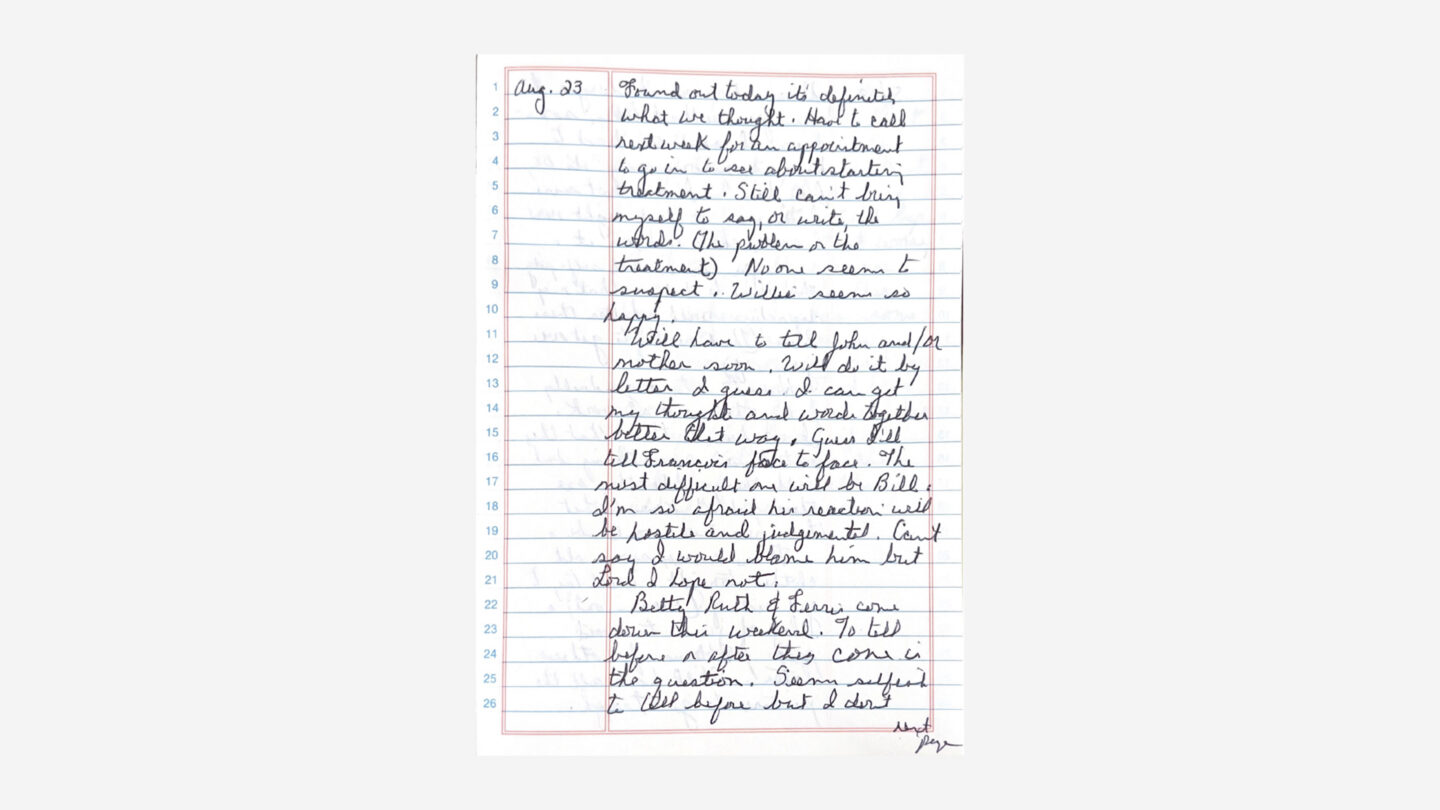 Aug. 23
1 Found out today it's definitely
2 what we thought. Have to call
3 next week for an appointment
4 to go in to see about starting
5 treatment. Still can't bring
6 myself to say, or write, the
7 words. (The problem or the
8 treatment) No one seems to
9 suspect. Willie seems so
10 happy.
11 Will have to tell John and/or
12 mother soon. Will do it by
13 letter I guess. I can get
14 my thoughts and words together
15 better that way. Guess I'll
16 tell Francois face to face. The
17 most difficult one will be Bill.
18 I'm so afraid his reaction will
19 be hostile and judgemental. Can't
20 say I would blame him but
21 Lord I hope not.
22 Betty Ruth & come
23 down this weekend. To tell
24 before or after they come is
25 the question. Seems selfish
26 to tell before but I don't
next
page